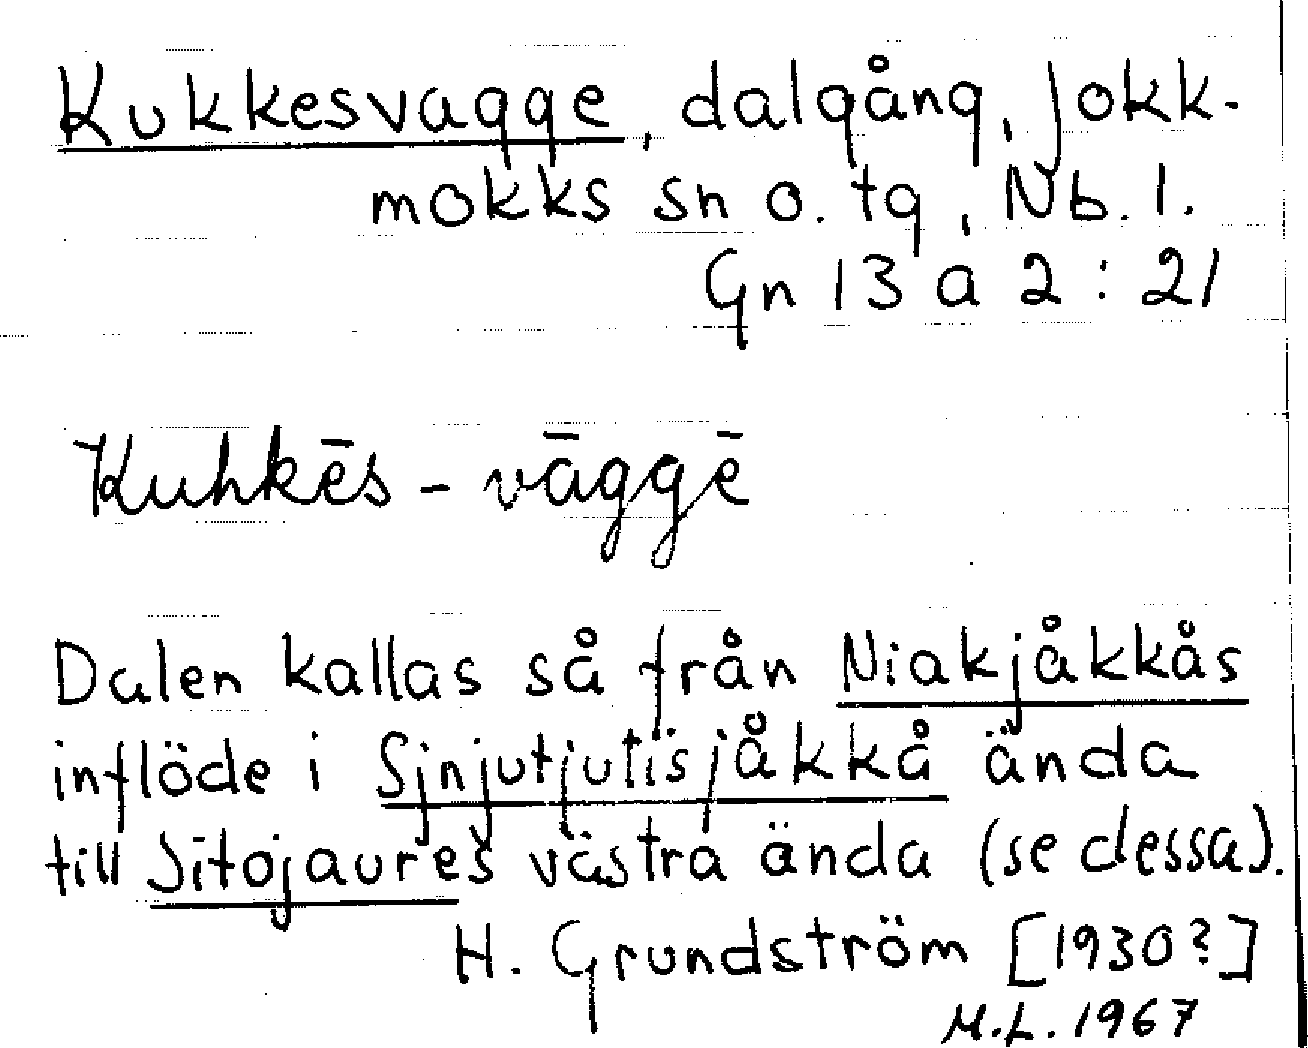 Kukkesvagge, dalgång, Jokk-
mokks sn o. tg, Nb. l.
Gn 13 a 2 : 21
Kuhkēs - vāggē
Dalen kallas så från Niakjåkkås
inflöde i Sjnjutjutisjåkkå ända
till Sitojaures västra ända (se dessa).
H. Grundström [1930?]
M.L. 1967